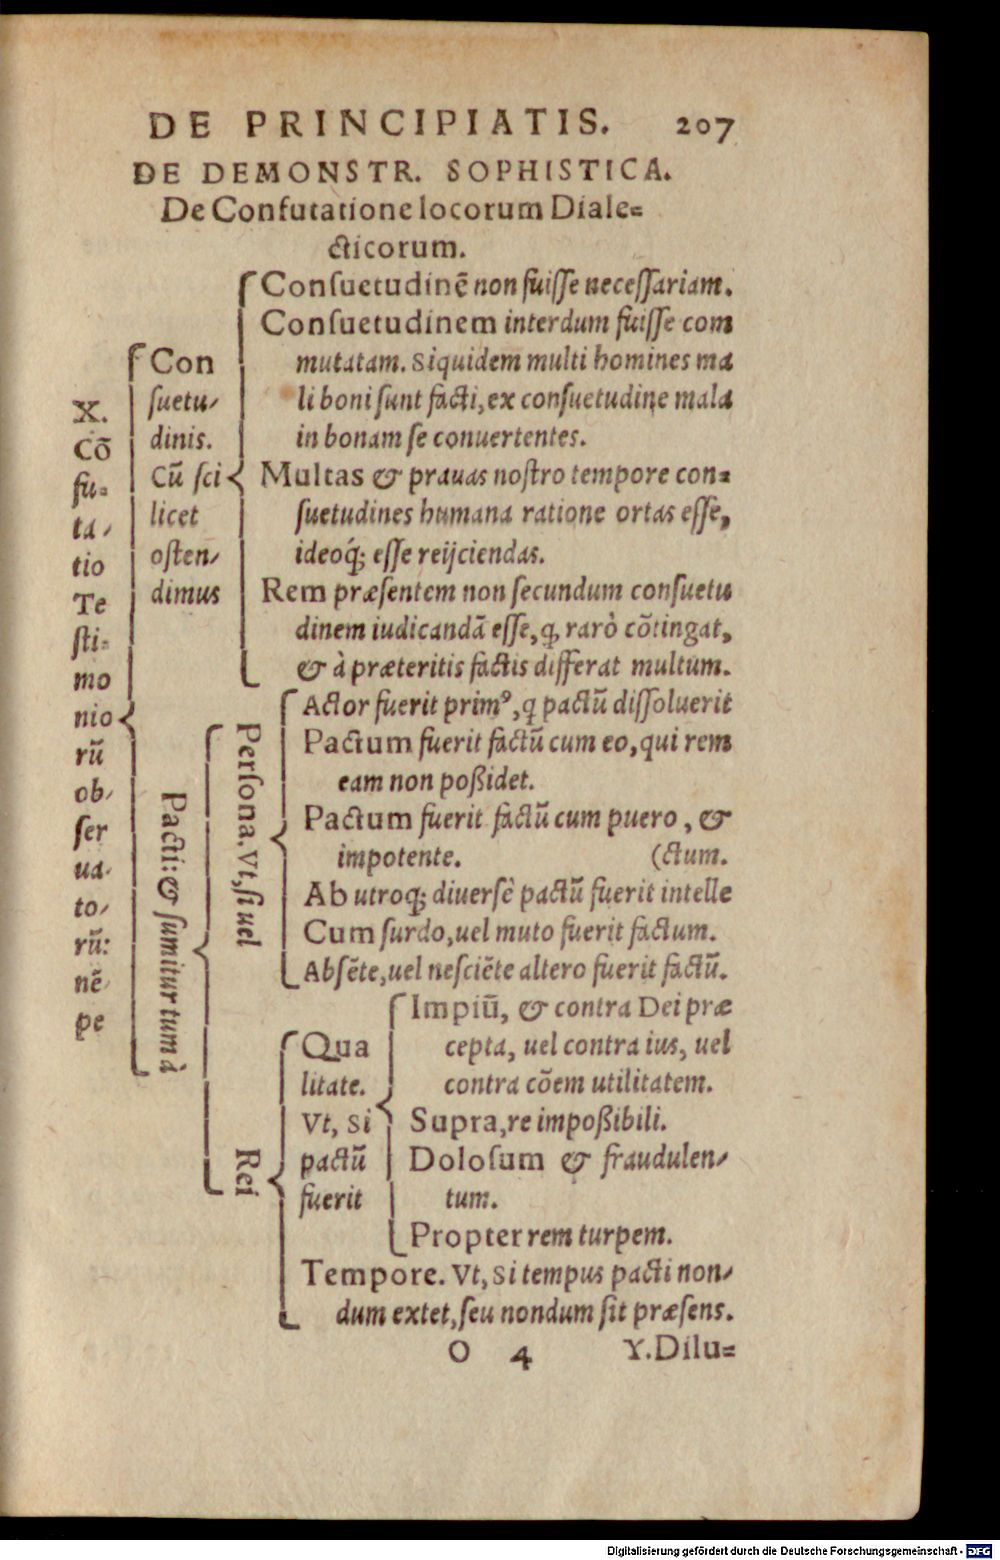 DE PRINCIPIATIS. 207
DE DEMONSTR. SOPHISTICA.
De Confutatione locorum Diale=
cticorum.
X.
Cõ
fu=
ta-
tio
Te
sti-
mo
nio
rũ
ob-
ser
ua-
to-
rũ:
nẽ-
pe
Con
suetu-
dinis.
Cũ sci
licet
osten-
dimus
Consuetudinẽ non fuisse necessariam.
Consuetudinem interdum fuisse com
mutatam. Siquidem multi homines ma
li boni sunt facti, ex consuetudine mala
in bonam se conuertentes.
Multas & prauas nostro tempore con=
suetudines humana ratione ortas esse,
ideoq́; esse reijciendas.
Rem præsentem non secundum consuetu
dinem iudicandã esse, q, rarò cõtingat,
& à præteritis factis differat multum.
Pacti: & sumitur tum à
Persona. Vt, si uel
Actor fuerit primꝰ, q pactũ dissoluerit
Pactum fuerit factũ cum eo, qui rem
eam non poßidet.
Pactum fuerit factũ cum puero, &
impotente. (ctum.
Ab utroq; diuersè pactũ fuerit intelle
Cum surdo, uel muto fuerit factum.
Absẽte, uel nesciẽte altero fuerit factũ.
Rei
Qua
litate.
Vt, Si
pactũ
fuerit
Impiũ, & contra Dei præ
cepta, uel contra ius, uel
contra cõem utilitatem.
Supra, re impoßibili.
Dolosum & fraudulen-
tum.
Propter rem turpem.
Tempore. Vt, Si tempus pacti non-
dum extet, seu nondum sit præsens.
O 4 Y. Dilu=
Digitalisierung gefördert durch die Deutsche Forschungsgemeinschaft - DFG